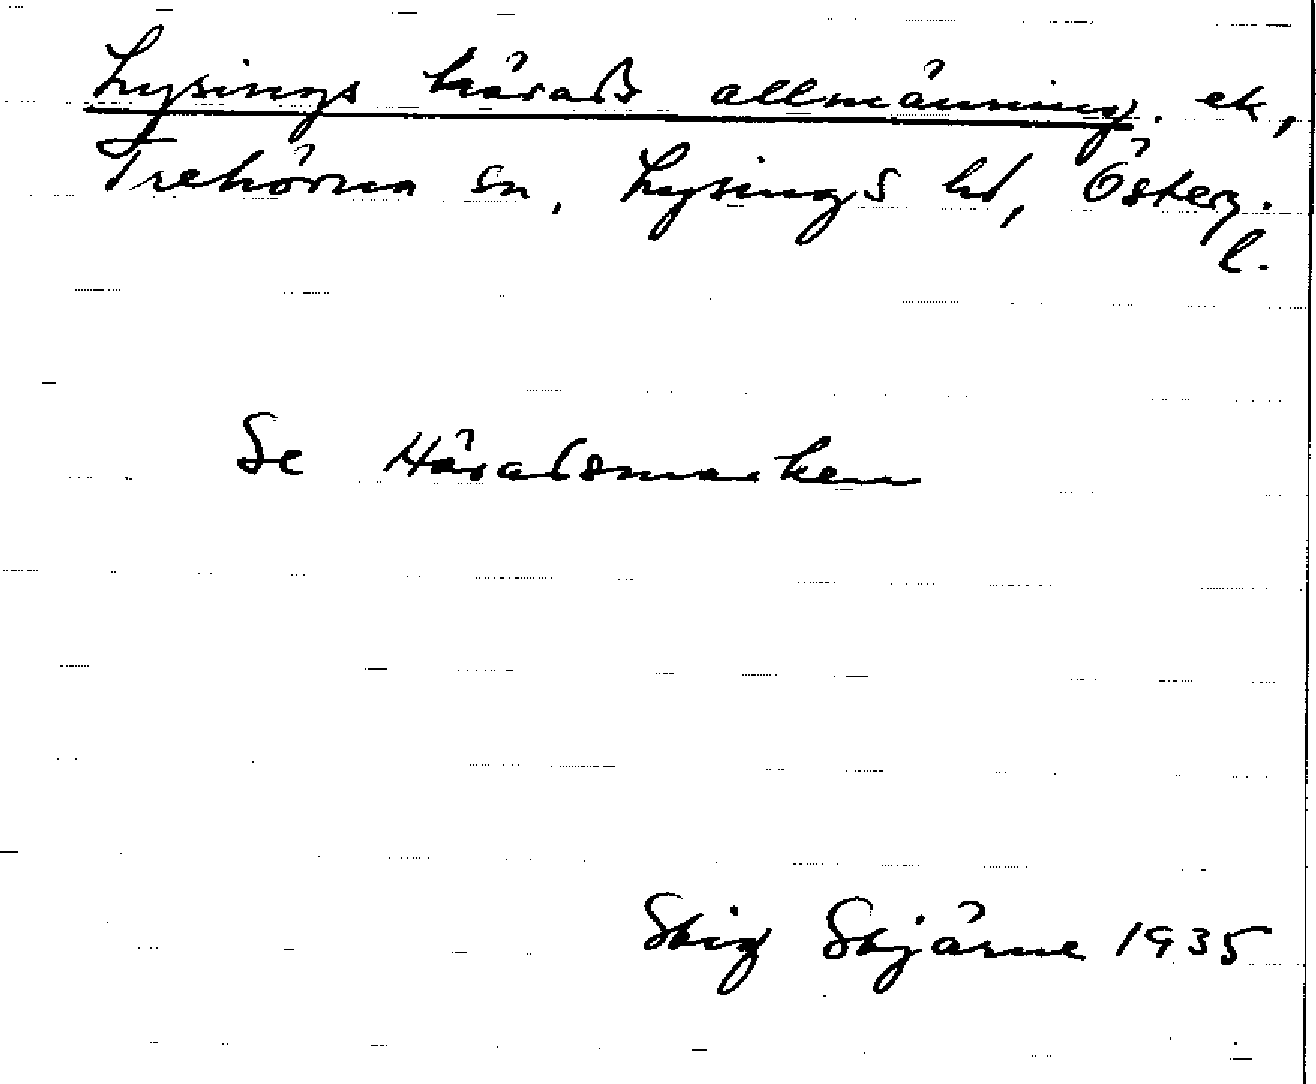 Lysings härads allmänning. ek,
Trehörna sn, Lysings hd, Österg.
l.
Se Häradsmarken
Stig Stjärne 1935